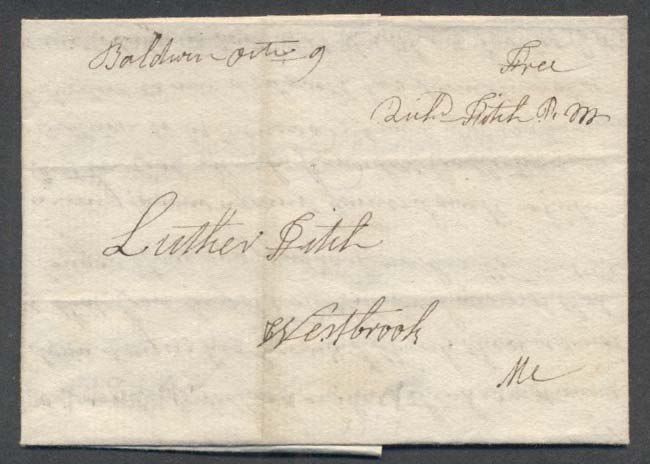 Baldwin Octr 9
Free
Richd Fitch P. M
Luther Fitch
Westbrook
Me